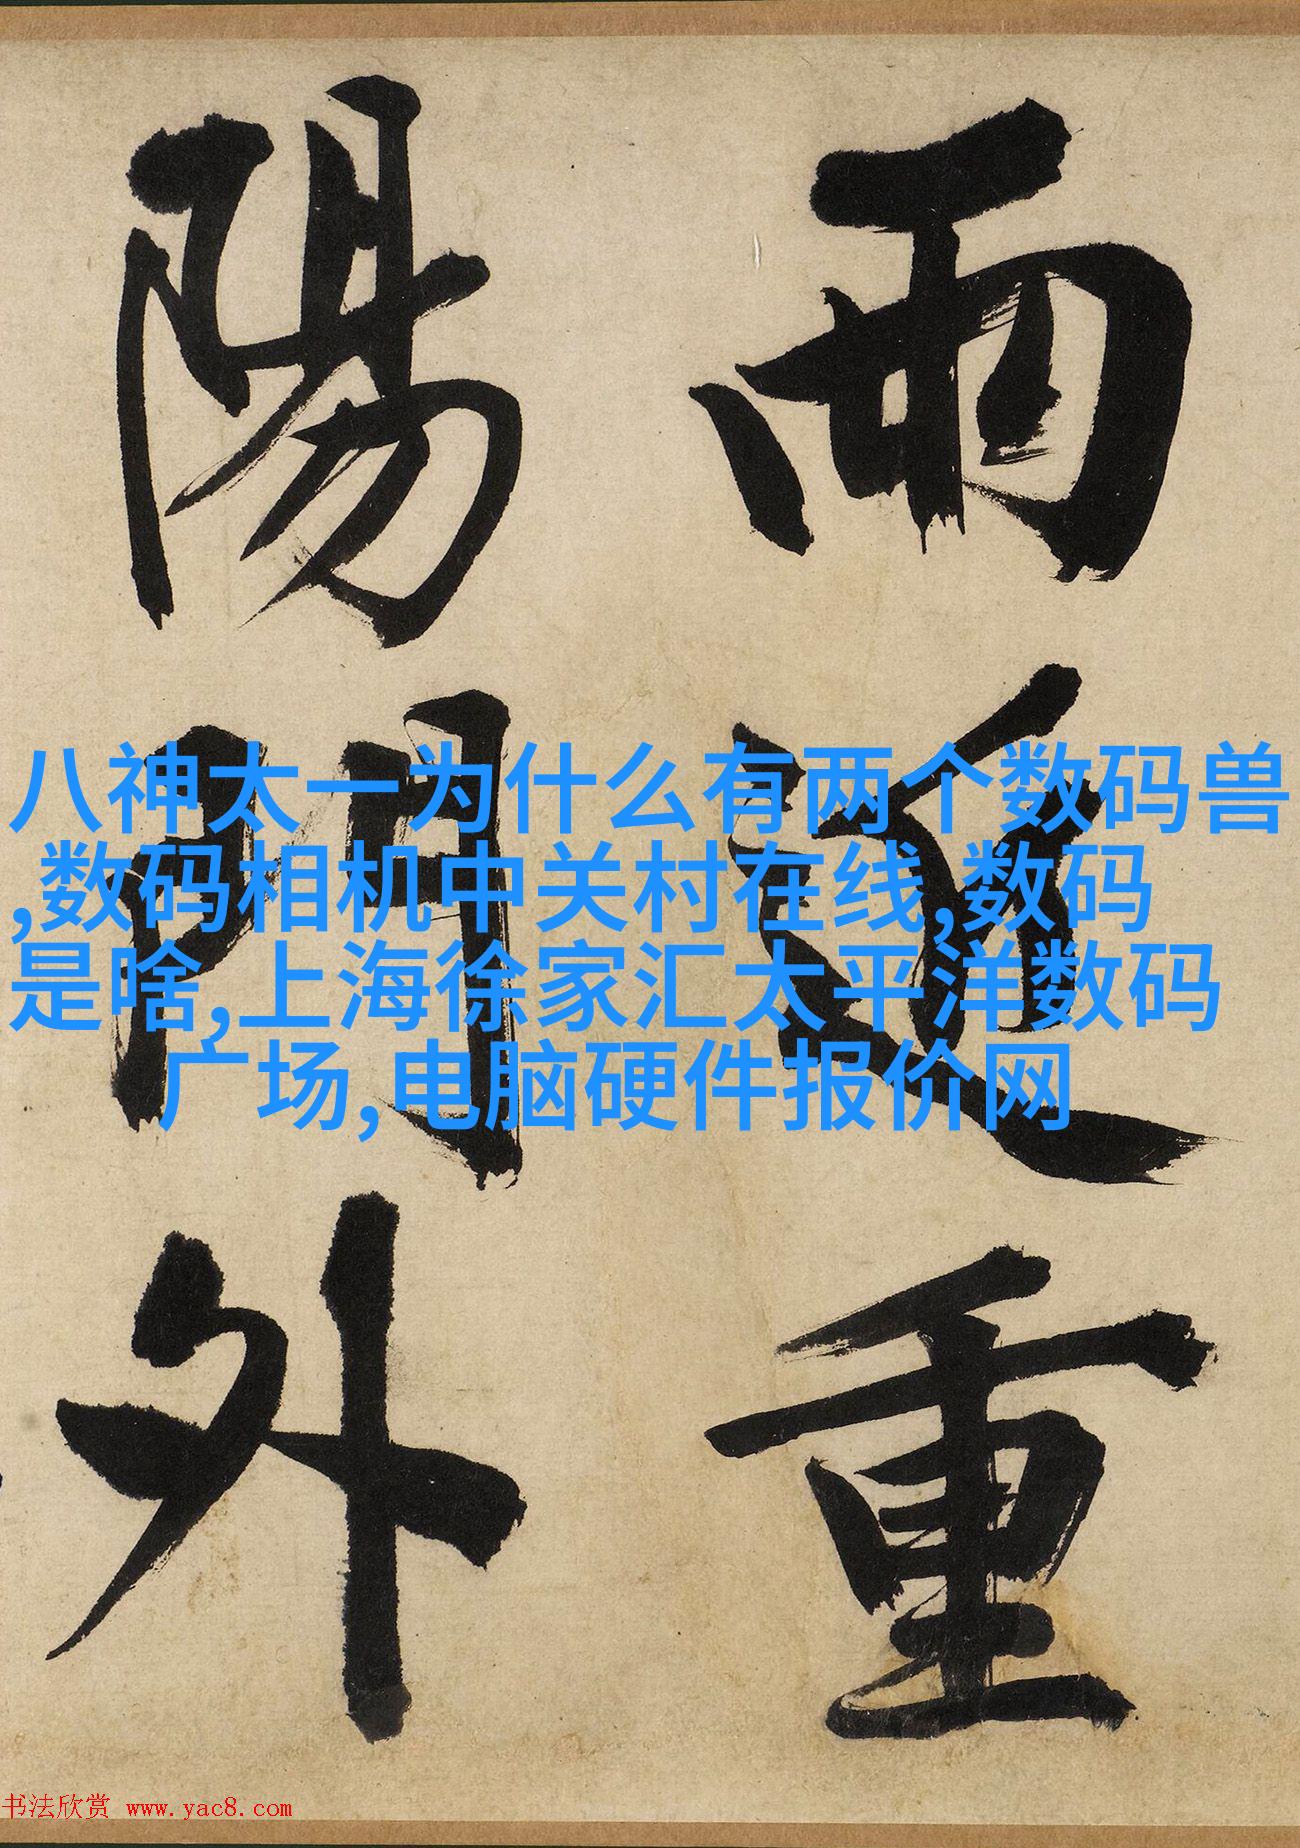 雨近重
陽門外
八神太一为什么有两个数码兽
,数码相机中关村在线,数码
是啥,上海徐家汇太平洋数码
广场,电脑硬件报价网
书法欣赏 www.yac8.com